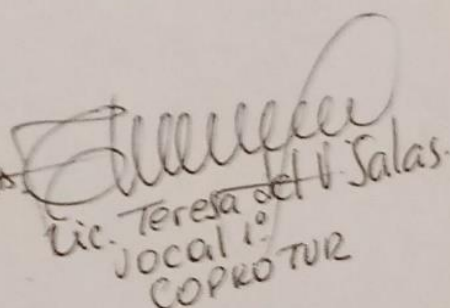 Lic. Teresa del V. Salas.
Vocal 1º
COPROTUR